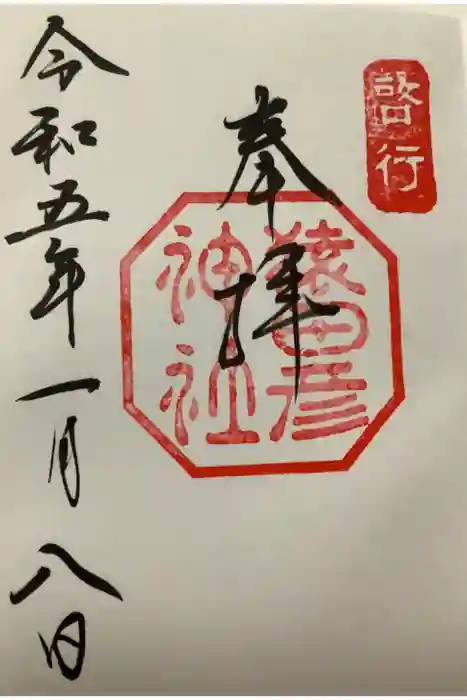 啓行
奉拝
猿田彦
神社
令和五年一月八日